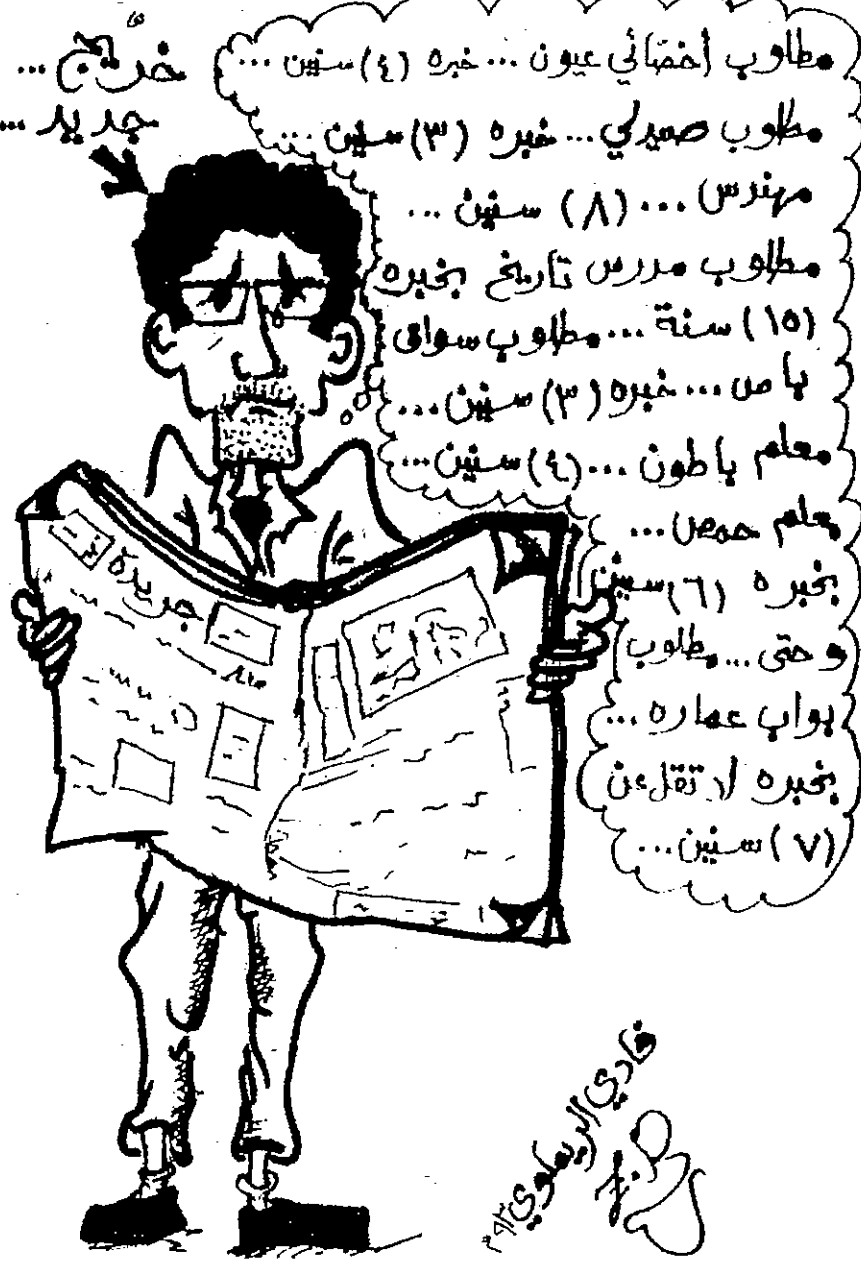 خرّيج...
جديد...
مطلوب أخصّائي عيون... خبره (٤) سنين...
مطلوب صيدلي... خبره (٣) سنين...
مهندس... (٨) سنين...
مطلوب مدرس تاريخ بخبره
(١٥) سنة... مطلوب سواق
باص... خبره (٣) سنين...
معلم باطون... (٤) سنين...
معلم حمص...
بخبره (٦) سنين
و حتى... مطلوب
بواب عماره...
بخبره لا تقل عن
(٧) سنين...
جريدة
فادي الريماوي